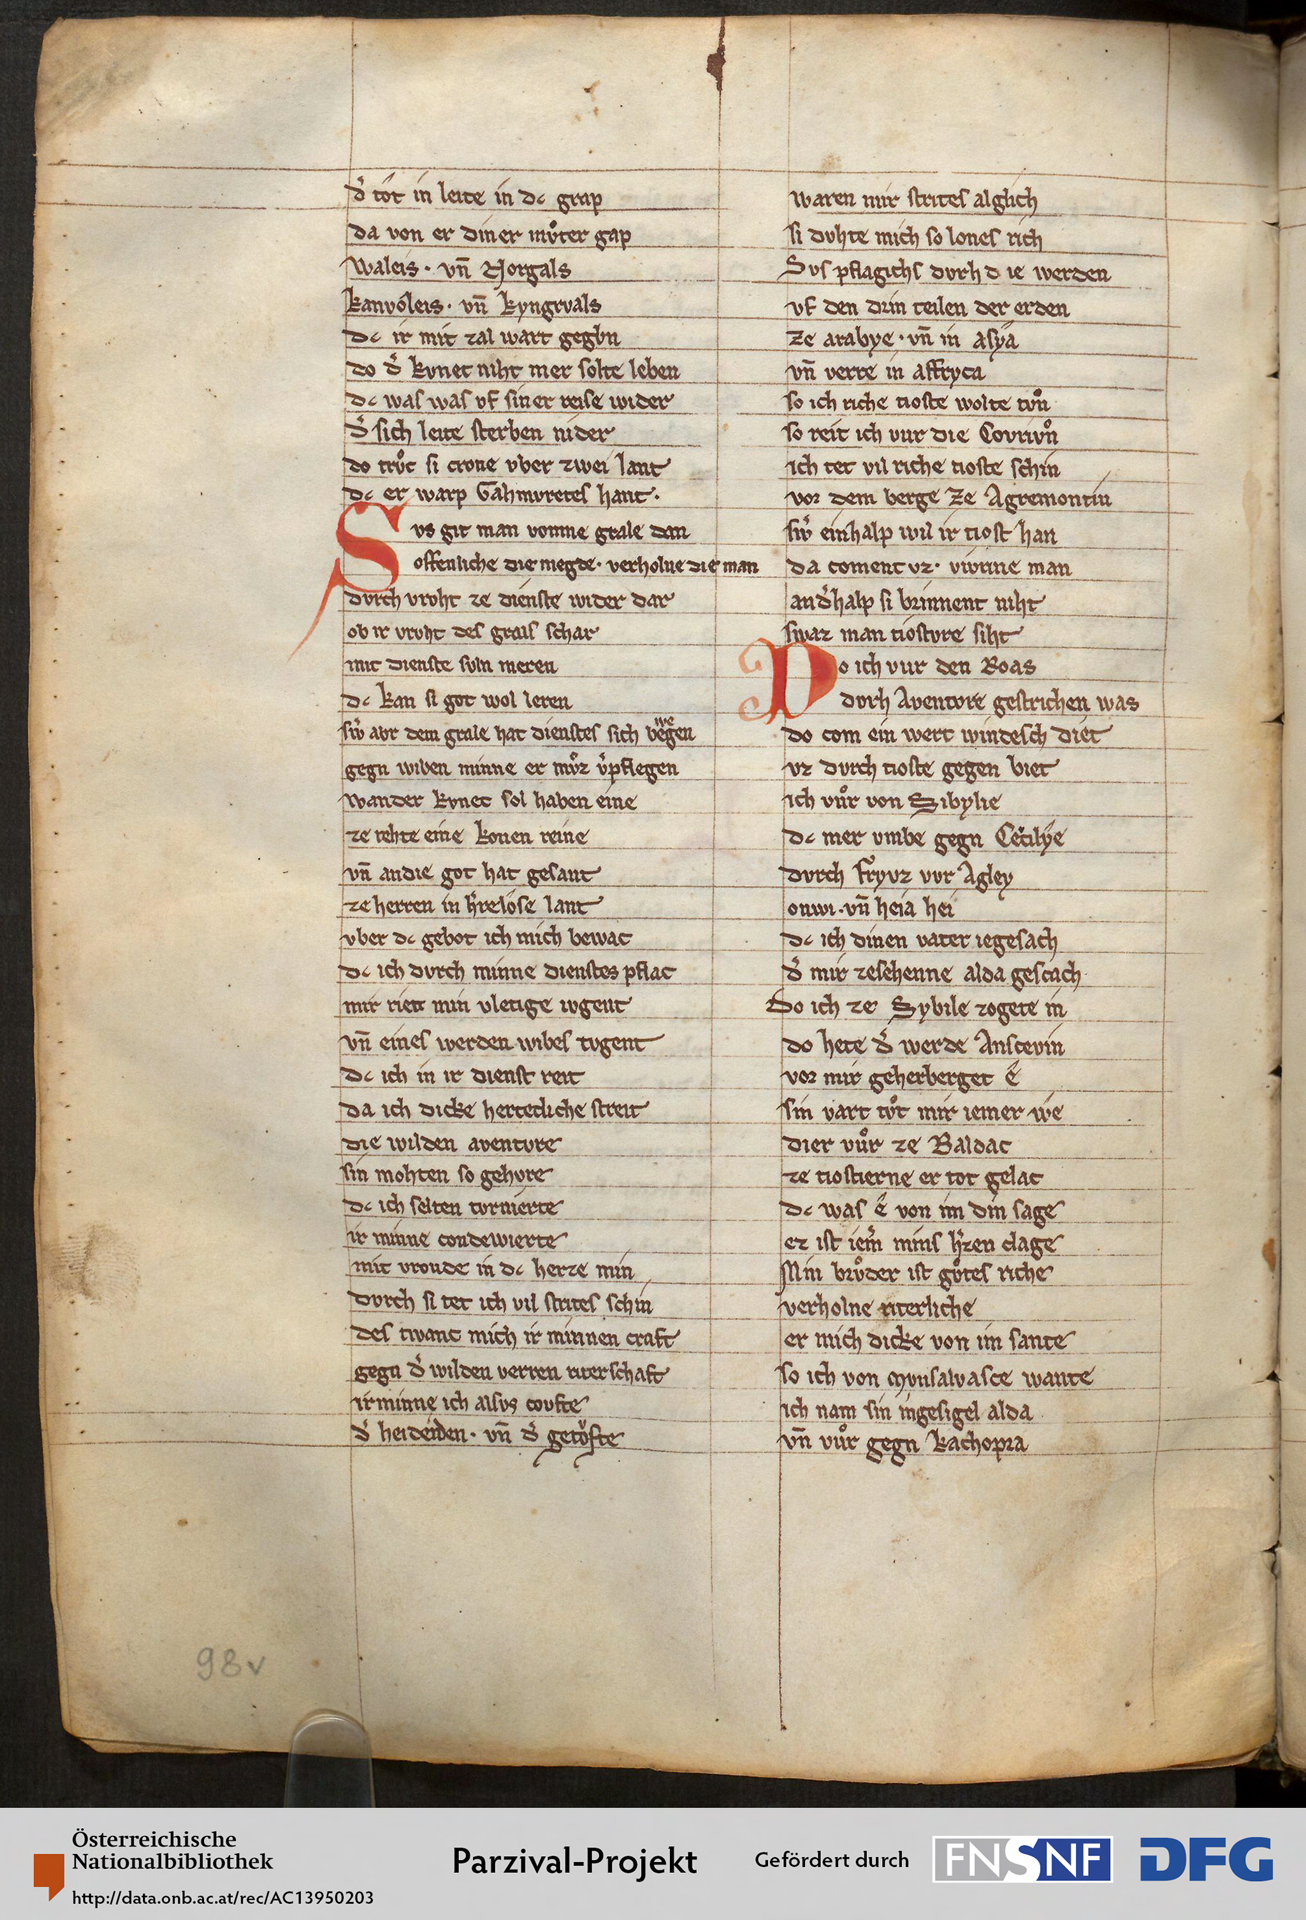 dˢ tôt in leite in dc grap
da von er diner mvͦter gap
Waleis · vn̄ Norgals
kanvóleis · vn̄ kyngrvals
dc ir mit zal wart gegbn
do dˢ kvnec niht mer solte leben
dc was was vf siner reise wider
dˢ sich leite sterben nider
do trvͦc si crone vber zwei lant
dc er warp Gahmvretes hant ·
Svs git man vomme grale dan
offenliche die megde · verholne die man
dvrch vroht ze dienste wider dar
ob ir vroht des grals schar
mit dienste svln meren
dc kan si got wol leren
swˢ abr dem grale hat dienstes sich bewegen
gegn wiben minne er mvͦz vˢpflegen
wander kvnec sol haben eine
ze rehte eine konen reine
vn̄ andie got hat gesant
ze herren in hˢrelose lant
vber dc gebot ich mich bewac
dc ich dvrch minne dienstes pflac
mir riett min vletige ivgent
vn̄ eines werden wibes tvgent
dc ich in ir dienst reit
da ich dicke hertecliche streit
die wilden aventvre
sin mohten so gehvre
dc ich selten tornierte
ir minne condewierte
mit vrovde in dc herze min
dvrch si tet ich vil strites schin
des twanc mich ir minnen craft
gegn dˢ wilden verren riterschaft
ir minne ich alsvs covfte
dˢ heideiden · vn̄ dˢ getoͮfte
waren mir strites alglich
si dvhte mich so lones rich
Svs pflagichs dvrh d ie werden
vf den drin teilen der erden
ze arabye · vn̄ in asya
vn̄ verre in affryca
so ich riche tioste wolte tvͦn
so reit ich vur die Covrivͦn
ich tet vil riche tioste schin
vor dem berge ze Agremontin
swˢ einhalp wil ir tiost han
da coment vz · vivrine man
andˢhalp si brinnent niht
swaz man tiostvre siht
Do ich vur den Roas
dvrh Aventvre gestrichen was
do com ein wert windesch diet
vz dvrch tioste gegen biet
ich vvͦr von Sibylie
dc mer vmbe gegn Cecilye
dvrch Fryvz vvr Agley
onwi · vn̄ heia hei
dc ich dinen vater iegesach
dˢ mir zesehenne alda gescach
Do ich ze Sybile zogete in
do hete dˢ werde Anscevin
vor mir geherberget ê
sin vart tvͦt mir iemer we
dier vvͦr ze Baldac
ze tiostierne er tot gelac
dc was ê von im din sage
ez ist iemˢ mins hˢzen clage
Min brvͦder ist gvͦtes riche
verholne riterliche
er mich dicke von im sante
so ich von mvnsalvasce wante
ich nam sin ingesigel alda
vn̄ vvͦr gegn kachopra
98v
Österreichische
Nationalbibliothek
http://data.onb.ac.at/rec/AC13950203
Parzival-Projekt
Gefördert durch
FNSNF
DFG